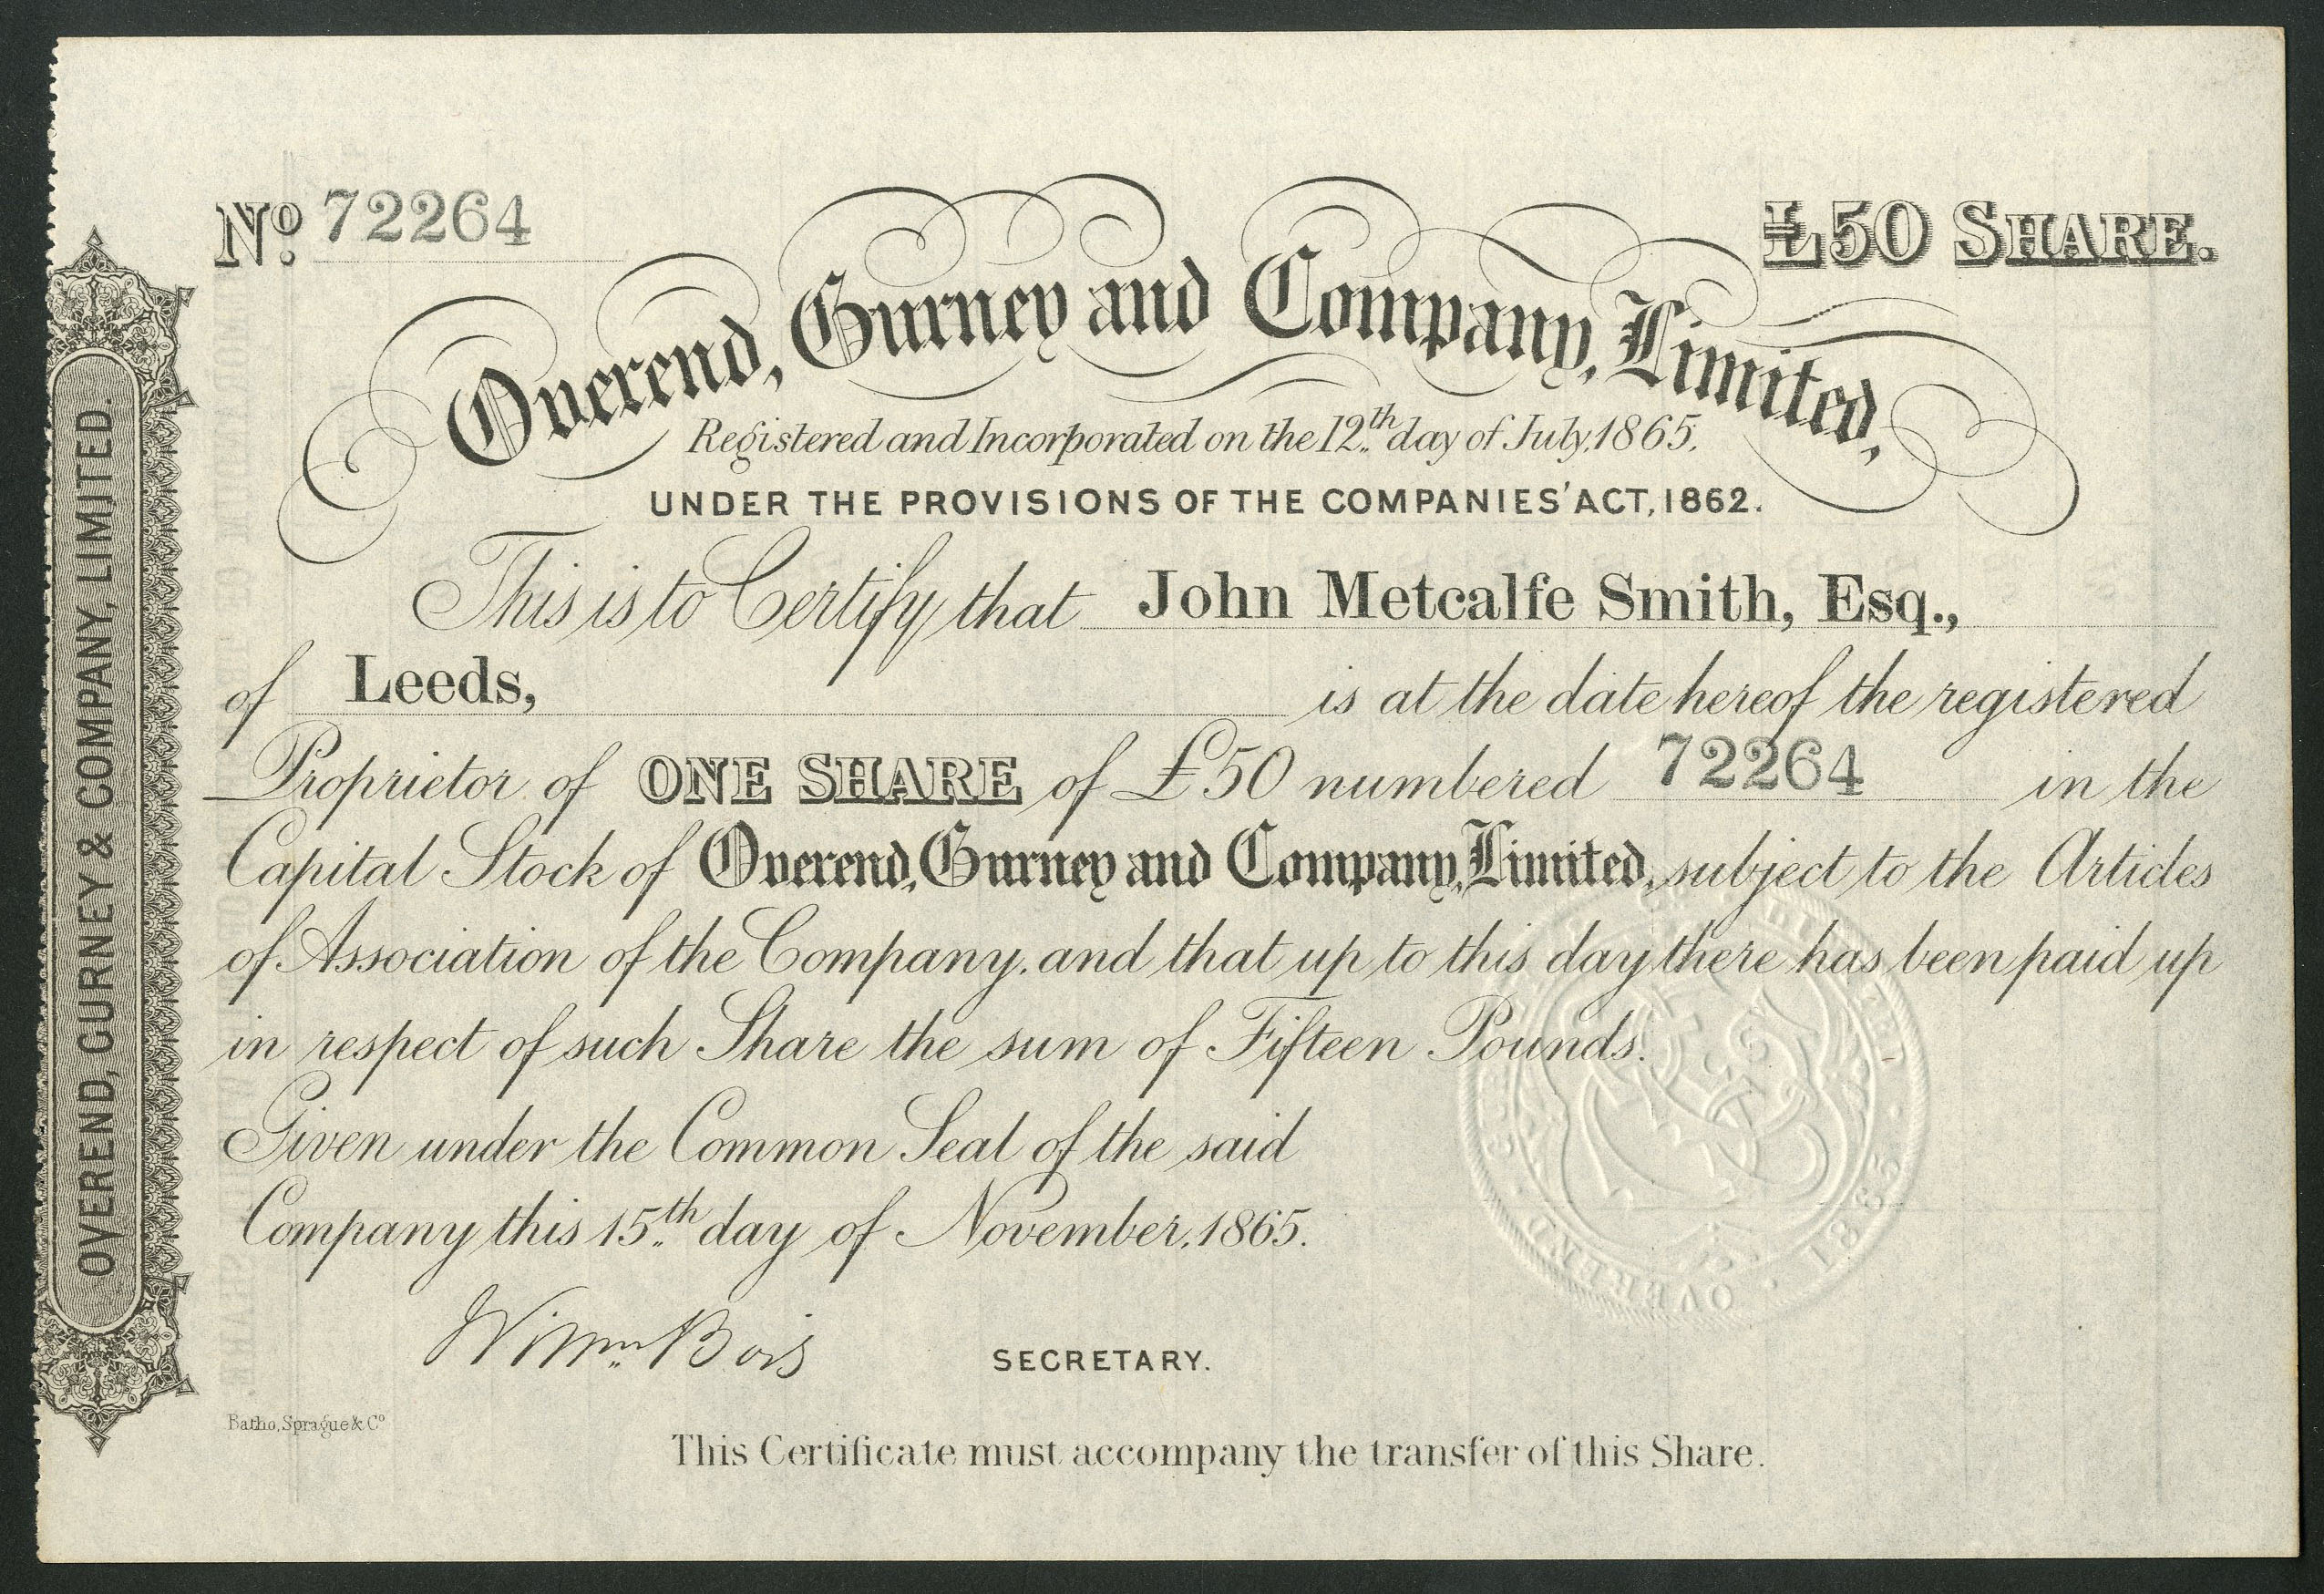 No. 72264
£50 SHARE.
Overend, Gurney and Company, Limited,
Registered and Incorporated on the 12th day of July, 1865.
UNDER THE PROVISIONS OF THE COMPANIES' ACT, 1862.
This is to Certify that John Metcalfe Smith, Esq.,
of Leeds, is at the date hereof the registered
Proprietor of ONE SHARE of £50 numbered 72264 in the
Capital Stock of Overend, Gurney and Company, Limited, subject to the Articles
of Association of the Company, and that up to this day there has been paid up
in respect of such Share the sum of Fifteen Pounds.
Given under the Common Seal of the said
Company this 15th day of November, 1865.
Bois
SECRETARY.
Batho, Sprague & Co
This Certificate must accompany the transfer of this Share.
OVEREND, GURNEY & COMPANY, LIMITED.
OVEREND
1865